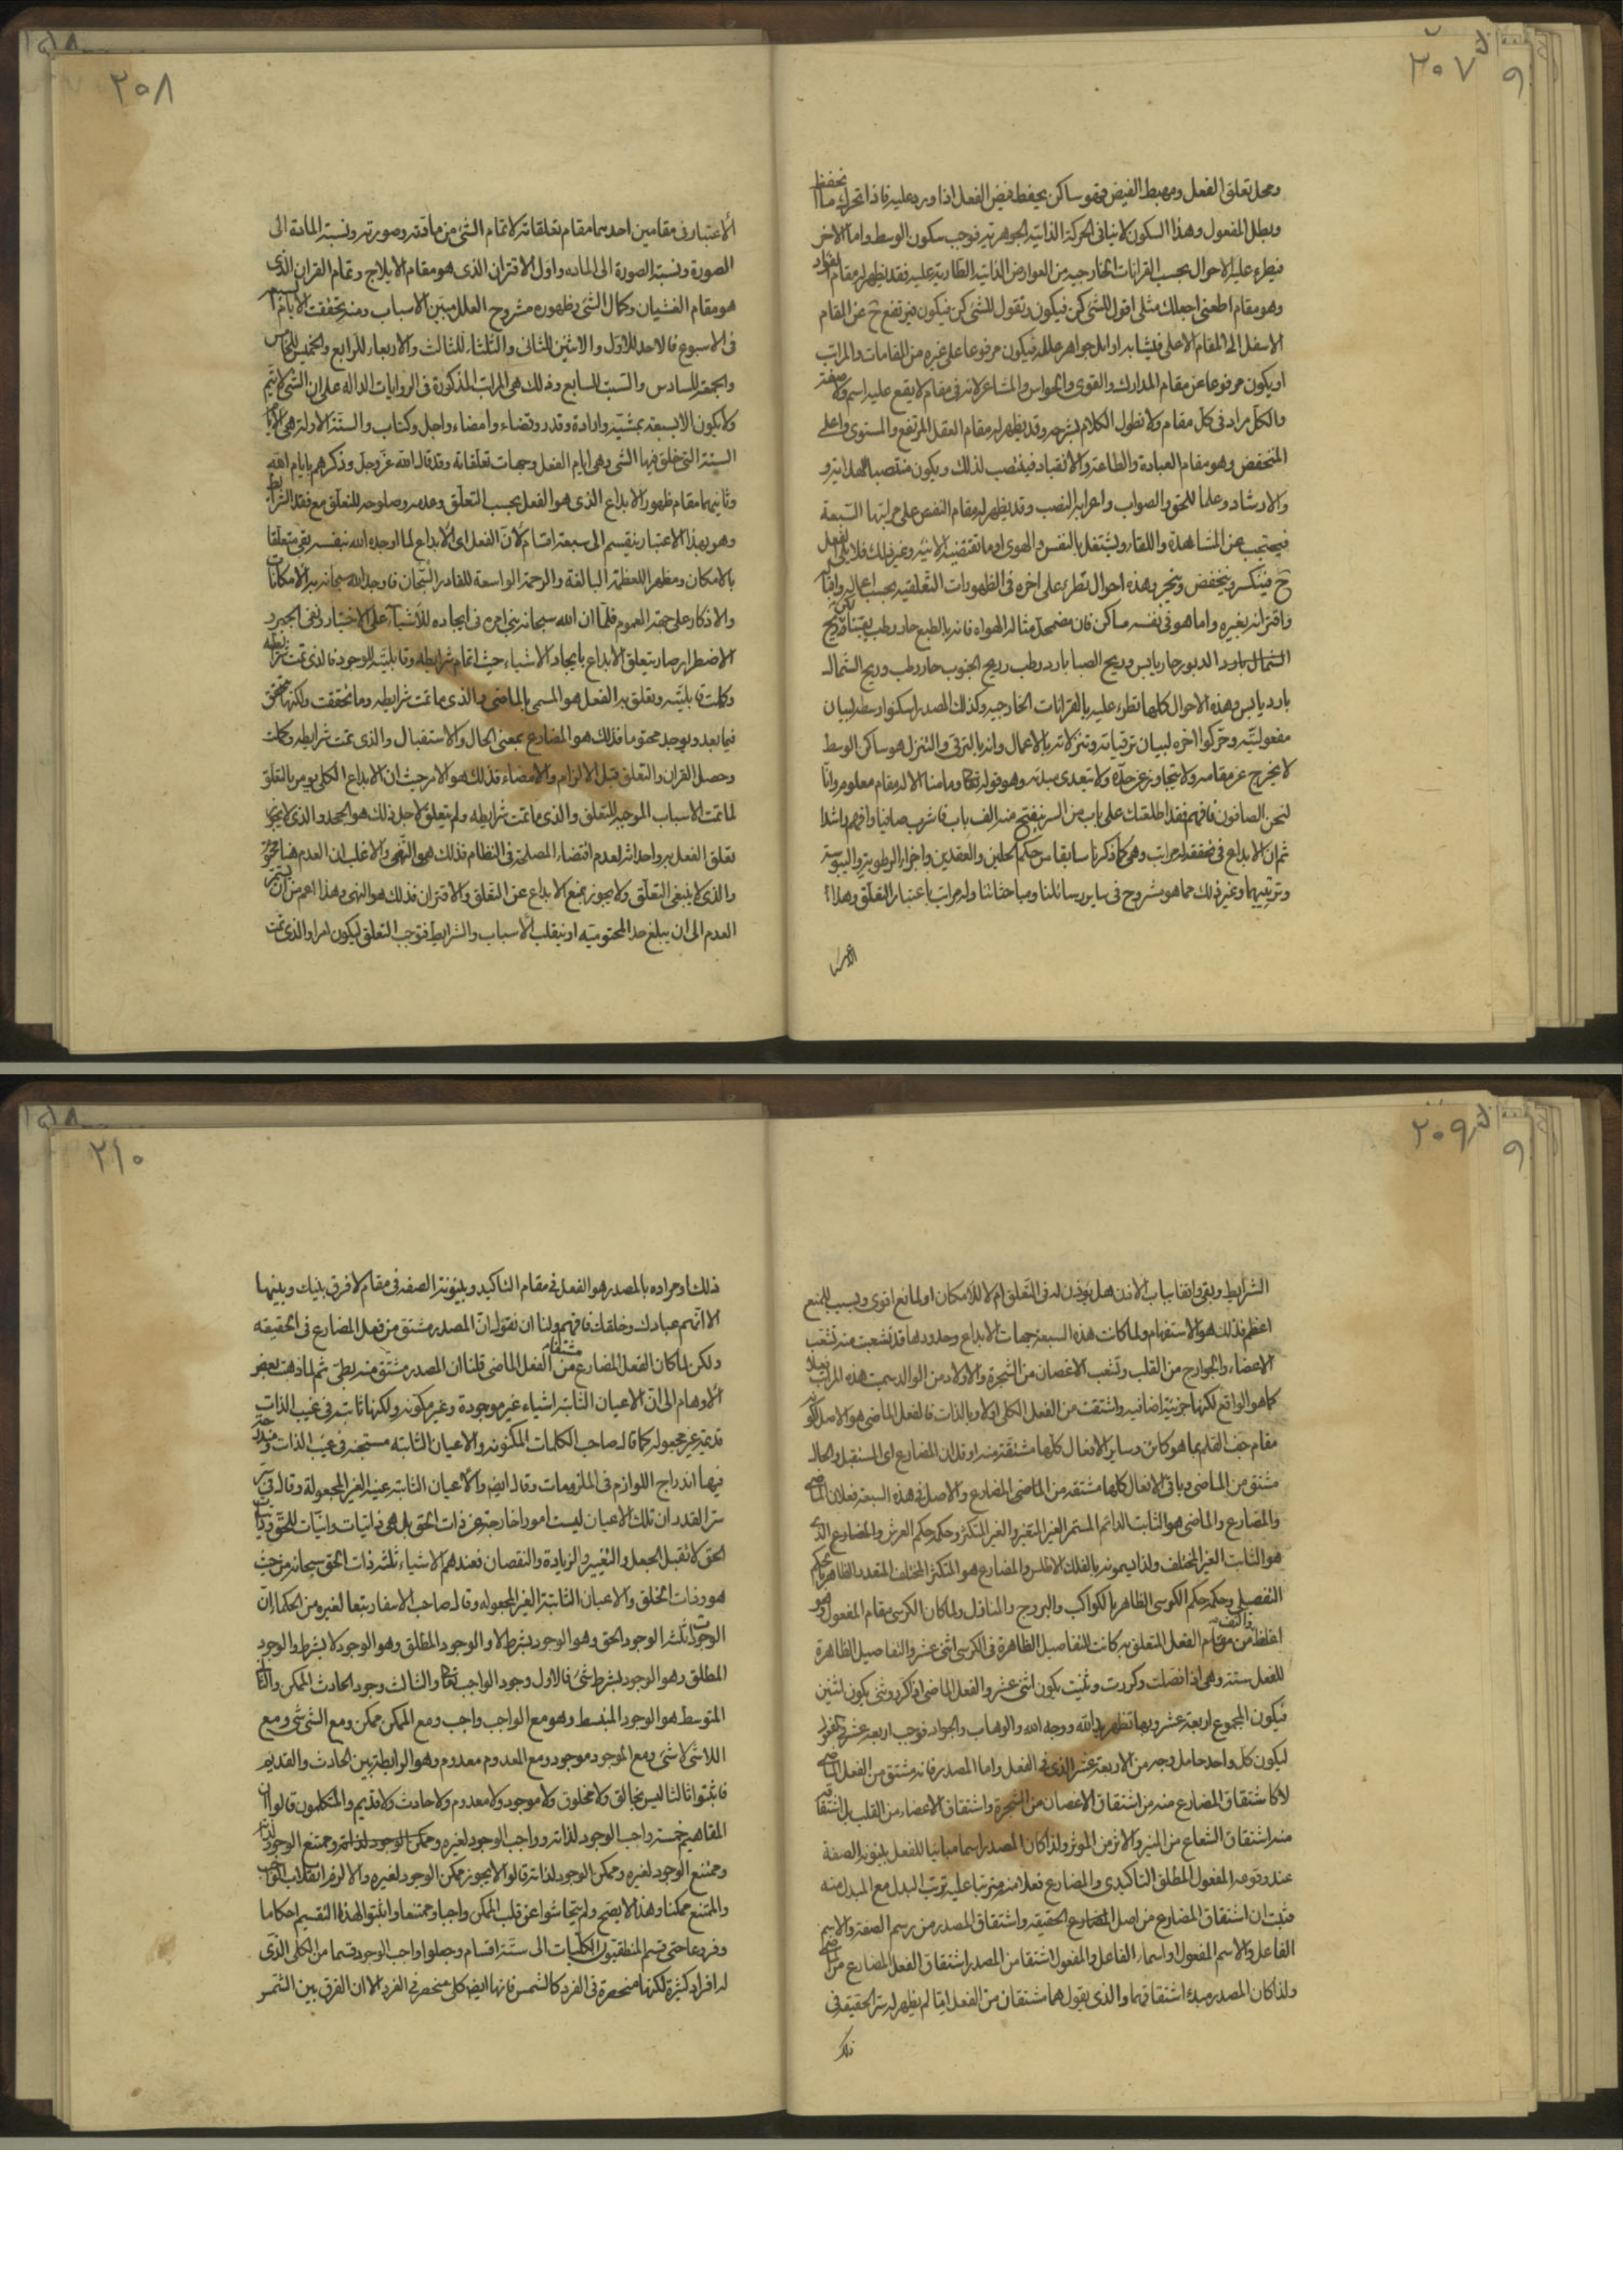 ٢٠٧
ومحل تعلق الفعل ومهبط الفيض فهو ساكن يحفظ فيض الفعل اذا ورد عليه فاذا تحرك ما انحفظ
وبطل المفعول وهذا السكون لا ينافى الحركة الذاتية الجوهرية فوجب سكون الوسط واما الاخر
فيطرء عليه الاحوال بحسب القرانات الخارجيه من العوارض الذاتية الطارية عليه فقد يظهر له مقام الفؤاد
وهو مقام اطعنى اجعلك مثلى اقول للشئ كن فيكون وتقول للشئ كن فيكون فيرتفع ح عن المقام
الاسفل الى المقام الاعلى فيشابه اوايل جواهر علله فيكون مرفوعا على غيره من المقامات والمراتب
او يكون مرفوعا عن مقام المدارك والقوى والحواس والمشاعر لانه فى مقام لا يقع عليه اسم ولا صفة
والكل مراد فى كل مقام ولا نطول الكلام بشرحه وقد يظهر له مقام العقل المرتفع والمستوى واعلى
المنخفض وهو مقام العبادة والطاعة والانقياد فينصب لذلك ويكون منتصبا للهداية و
والارشاد وعلما للحق والصواب واعرابه النصب وقد يظهر له مقام النفس على مراتبها السبعة
فيحتجب عن المشاهدة واللقاء ويشتغل بالنفس والهوى او ما تقتضيه الانية وغير ذلك فلا يلى الفعل
ح فينكسر وينخفض وينجر وهذه احوال تطرء على اخره فى الظهورات التعلقيه بحسب اعماله واقباله
واقترانه بغيره واما هو فى نفسه ساكن فان مضمحل مثاله الهواء فانه بالطبع حار رطب لكن ريح
الشمال بارد الدبور حار يابس وريح الصبا بارد رطب وريح الجنوب حار رطب وريح الشمال
بارد يابس وهذه الاحوال كلها تطرء عليه بالقرانات الخارجيه وكذلك المصدر اسكنوا وسطه لبيان
مفعوليته وحركوا اخره لبيان ترقياته وتنزلاته بالاعمال وانه بالترقى والتنزل هو ساكن الوسط
لا يخرج عن مقامه ولا يتجاوز عن حده ولا يتعدى مبدئه وهو قوله تعالى وما منا الا له مقام معلوم وانا
لنحن الصافون فافهم فقد اطلعتك على باب من السر ينفتح منه الف باب فاشرب صافيا وافهم راشدا
ثم ان الابداع فى تحققه له مراتب وهى كما ذكرنا سابقا من حكم الحلين والعقدين واجزاء الرطوبة واليبوسة
وترتيبهما وغير ذلك مما هو مشروح فى ساير رسائلنا ومباحثاتنا وله مراتب باعتبار التعلق وهذا
٢٠٨
الأعتبار فى مقامين احدهما مقام تعلقاته لاتمام الشئ من مادته وصورته ونسبة المادة الى
الصورة ونسبة الصورة الى المادة واول الاقتران الذى هو مقام الايلاج وتمام القران الذى
هو مقام الغشيان وكمال الشئ وظهوره مشروح العلل مبين الاسباب ومنه تحققت الايام السبعة
فى الاسبوع فالاحد للاول والاثنين للثانى والثلثاء للثالث والاربعاء للرابع والخميس للخامس
والجمعة للسادس والسبت للسابع وذلك هى المراتب المذكورة فى الروايات الدالة على ان الشئ لا يتم
ولا يكون الا بسبعة بمشية وارادة وقدر وقضاء وامضاء واجل وكتاب والستة الاولة هى الايام
الستة التى خلق فيها الشئ وهى ايام الفعل وجهات تعلقاته وقد قال الله عز وجل وذكرهم بايام الله
وثانيهما مقام ظهور الابداع الذى هو الفعل بحسب التعلق وعدمه وصلوحه للتعلق مع فقد الشرائط
وهو بهذا الاعتبار ينقسم الى سبعة اقسام لأن الفعل اى الأبداع لما اوجده الله بنفسه بقى متعلقا
بالامكان ومظهرا للعظمة البالغة والرحمة الواسعة للقادر السبحان فاوجد الله سبحانه به الأمكانات
والاذكار على جهة العموم فلما ان الله سبحانه بنى امره فى ايجاده للأشياء على الاختيار ونفى الجبر و
الاضطرار صار يتعلق الابداع بايجاد الاشياء حيث اتمام شرايطه وقابليته للوجود فالذى تمت شرائطه
وكملت قابليته وتعلق به الفعل هو المسمى بالماضى والذى ما تمت شرايطه وما تحققت ولكنها تتحقق
فيما بعد ويوجد محتوما فذلك هو المضارع بمعنى الحال والاستقبال والذى تمت شرايطه وكملت
وحصل القران والتعلق قبل الالزام والامضاء فذلك هو الامر حيث ان الابداع الكلى يؤمر بالتعلق
لما تمت الاسباب الموجبة للتعلق والذى ما تمت شرايطه ولم يتعلق لاجل ذلك هو الجحد والذى لا يجوز
تعلق الفعل به واحداثه لعدم اقتضاء المصلحة فى النظام فذلك هو النهى والاغلب ان العدم هنا
والذى لا ينبغى التعلق ولا يجوز بمنع الابداع عن التعلق والاقتران فذلك هو النهى وهذا اعم من ان يستمر
العدم الى ان يبلغ حد المحتومية او ينقلب الأسباب والشرايط فتوجب التعلق ليكون امرا والذى تمت
٢٠٩
الشرايط وبقى واقفا بباب الاذن هل يؤذن له فى التعلق ام لا للامكان او لمانع اقوى وبسبب للمنع
اعظم فذلك هو الاستفهام ولما كانت هذه السبعة جهات الابداع وحدودها قد تشعبت منه تشعب
الاعضاء والجوارح من القلب وتشعب الاغصان من الشجرة والاولاد من الوالد سميت هذه المراتب
كما هو الواقع لكنها جزئية اضافيه واشتقت من الفعل الكلى اولا وبالذات فالفعل الماضى هو الاصل
مقام جف القلم بما هو كائن وساير الافعال كلها مشتقة منه او قل ان المضارع اى المستقبل والحال
مشتق من الماضى وباقى الافعال كلها مشتقه من الماضى المضارع والاصل فى هذه السبعة فعلان الماضى
والمضارع والماضى هو الثابت الدائم المستمر الغير المتغير والغير المتكثر وحكمه حكم العرش والمضارع الذى
هو الثابت الغير المختلف ولذا يسمونه بالفلك الاطلس والمضارع هو المتكثر المختلف المتعدد الظاهر بالحكم
التفصيلى وحكمه حكم الكوسى الظاهر بالكواكب والبروج والمنازل ولما كان الكرسى مقام المفعول وهو
اغلظ واكثف من مقام الفعل المتعلق به كانت التفاصيل الظاهرة فى الكرسى اثنى عشر والتفاصيل الظاهرة
للفعل ستة وهى اذا فصلت وكررت وثنيت يكون اثنى عشر والفعل الماضى اذا كرر وثنى يكون اثنين
فيكون المجموع اربعة عشر وبها تظهر يد الله ووجه الله والوهاب والجواد فوجب اربعة عشر
ليكون كل واحد حامل وجه من الاربعة عشر الذى فى الفعل واما المصدر فانه مشتق من الفعل الماضى
لا كاشتقاق المضارع منه من اشتقاق الاغصان من الشجرة واشتقاق الاعضاء من القلب بل اشتقاقه
منه اشتقاق الشعاع من المنير والاثر من الموثر ولذا كان المصدر اسما مباينا للفعل بينونة الصفة
عند وقوعه المفعول المطلق التاكيدى والمضارع فعلا منه مترتبا عليه ترتب البدل مع المبدل منه
فثبت ان اشتقاق المضارع من اصل الحقيقه واشتقاق المصدر من رسم الصفة والاسم
الفاعل والاسم المفعول او اسماء الفاعل والمفعول اشتقا من المصدر اشتقاق الفعل المضارع من الماضى
ولذا كان المصدر مبدء اشتقاقهما والذى يقول هما مشتقان من الفعل ايضا لم يظهر له سر الحقيقة فى
ذلك
٢١٠
ذلك او مراده بالمصدر هو الفعل فى مقام التاكيد وبينونة الصفة فى مقام لا فرق بينك وبينها
الا انهم عبادك وخلقك فافهم ولنا ان نقول ان المصدر مشتق من فعل المضارع فى الحقيقه
ولكن لما كان الفعل المضارع مشتقا من الفعل الماضى قلنا ان المصدر مشتق منه بطى ثم لما ذهبت بعض
الأوهام الى ان الاعيان الثابتة اشياء غير موجودة وغير مكونة ولكنها ثابتة فى غيب الذات
قديمة غير مجعولة كما قال صاحب الكلمات المكنونه والاعيان الثابته مستجنه فى غيب الذات ومندرجة
فيها اندراج اللوازم فى الملزومات وقال ايضا والأعيان الثابتة عينه الغير المجعولة وقال فى سر
سر القدر ان تلك الاعيان ليست امورا خارجة عن ذات الحق بل هى ذاتيات وانيات للحق وذاتيات
الحق لا تقبل الجعل والتغيير والزيادة والنقصان فعندهم الاشياء ثلثة ذات الحق سبحانه من حيث
هو وذات الخلق والاعيان الثابتة الغير المجعوله وقال صاحب الاسفار تبعا لغيره من الحكماء ان
الوجودات ثلثة الوجود الحق وهو الوجود بشرط لا والوجود المطلق وهو الوجود لا بشرط والوجود
المطلق وهو الوجود بشرط شئ فالاول وجود الواجب تعالى والثالث وجود الحادث الممكن والثانى
المتوسط هو الوجود المنبسط وهو مع الواجب واجب ومع الممكن ممكن ومع الشئ شئ ومع
اللاشئ لا شئ ومع الموجود موجود ومع المعدوم معدوم وهو الرابطة بين الحادث والقديم
فاثبتوا ثالثا ليس بخالق ولا مخلوق ولا موجود ولا معدوم ولا حادث ولا قديم والمتكلمون قالوا ان
المفاهيم خمسة واجب الوجود لذاته وواجب الوجود لغيره وممكن الوجود لذاته وممتنع الوجود لذاته
وممتنع الوجود لغيره وممكن الوجود لذاته قالوا لا يجوز ممكن الوجود لغيره والا لزم انقلاب الواجب
والممتنع ممكنا وهذا لا يصح ولم يتحاشوا عن قلب الممكن واجبا وممتنعا واثبتوا لهذا التقسيم احكاما
وفروعا حتى قسم المنطقيون الكليات الى ستة اقسام وجعلوا واجب الوجود قسما من الكلى الذى
له افراد كثيرة لكنها منحصرة فى الفرد كالشمس فانها ايضا كلى منحصر فى الفرد الا ان الفرق بين الشمس